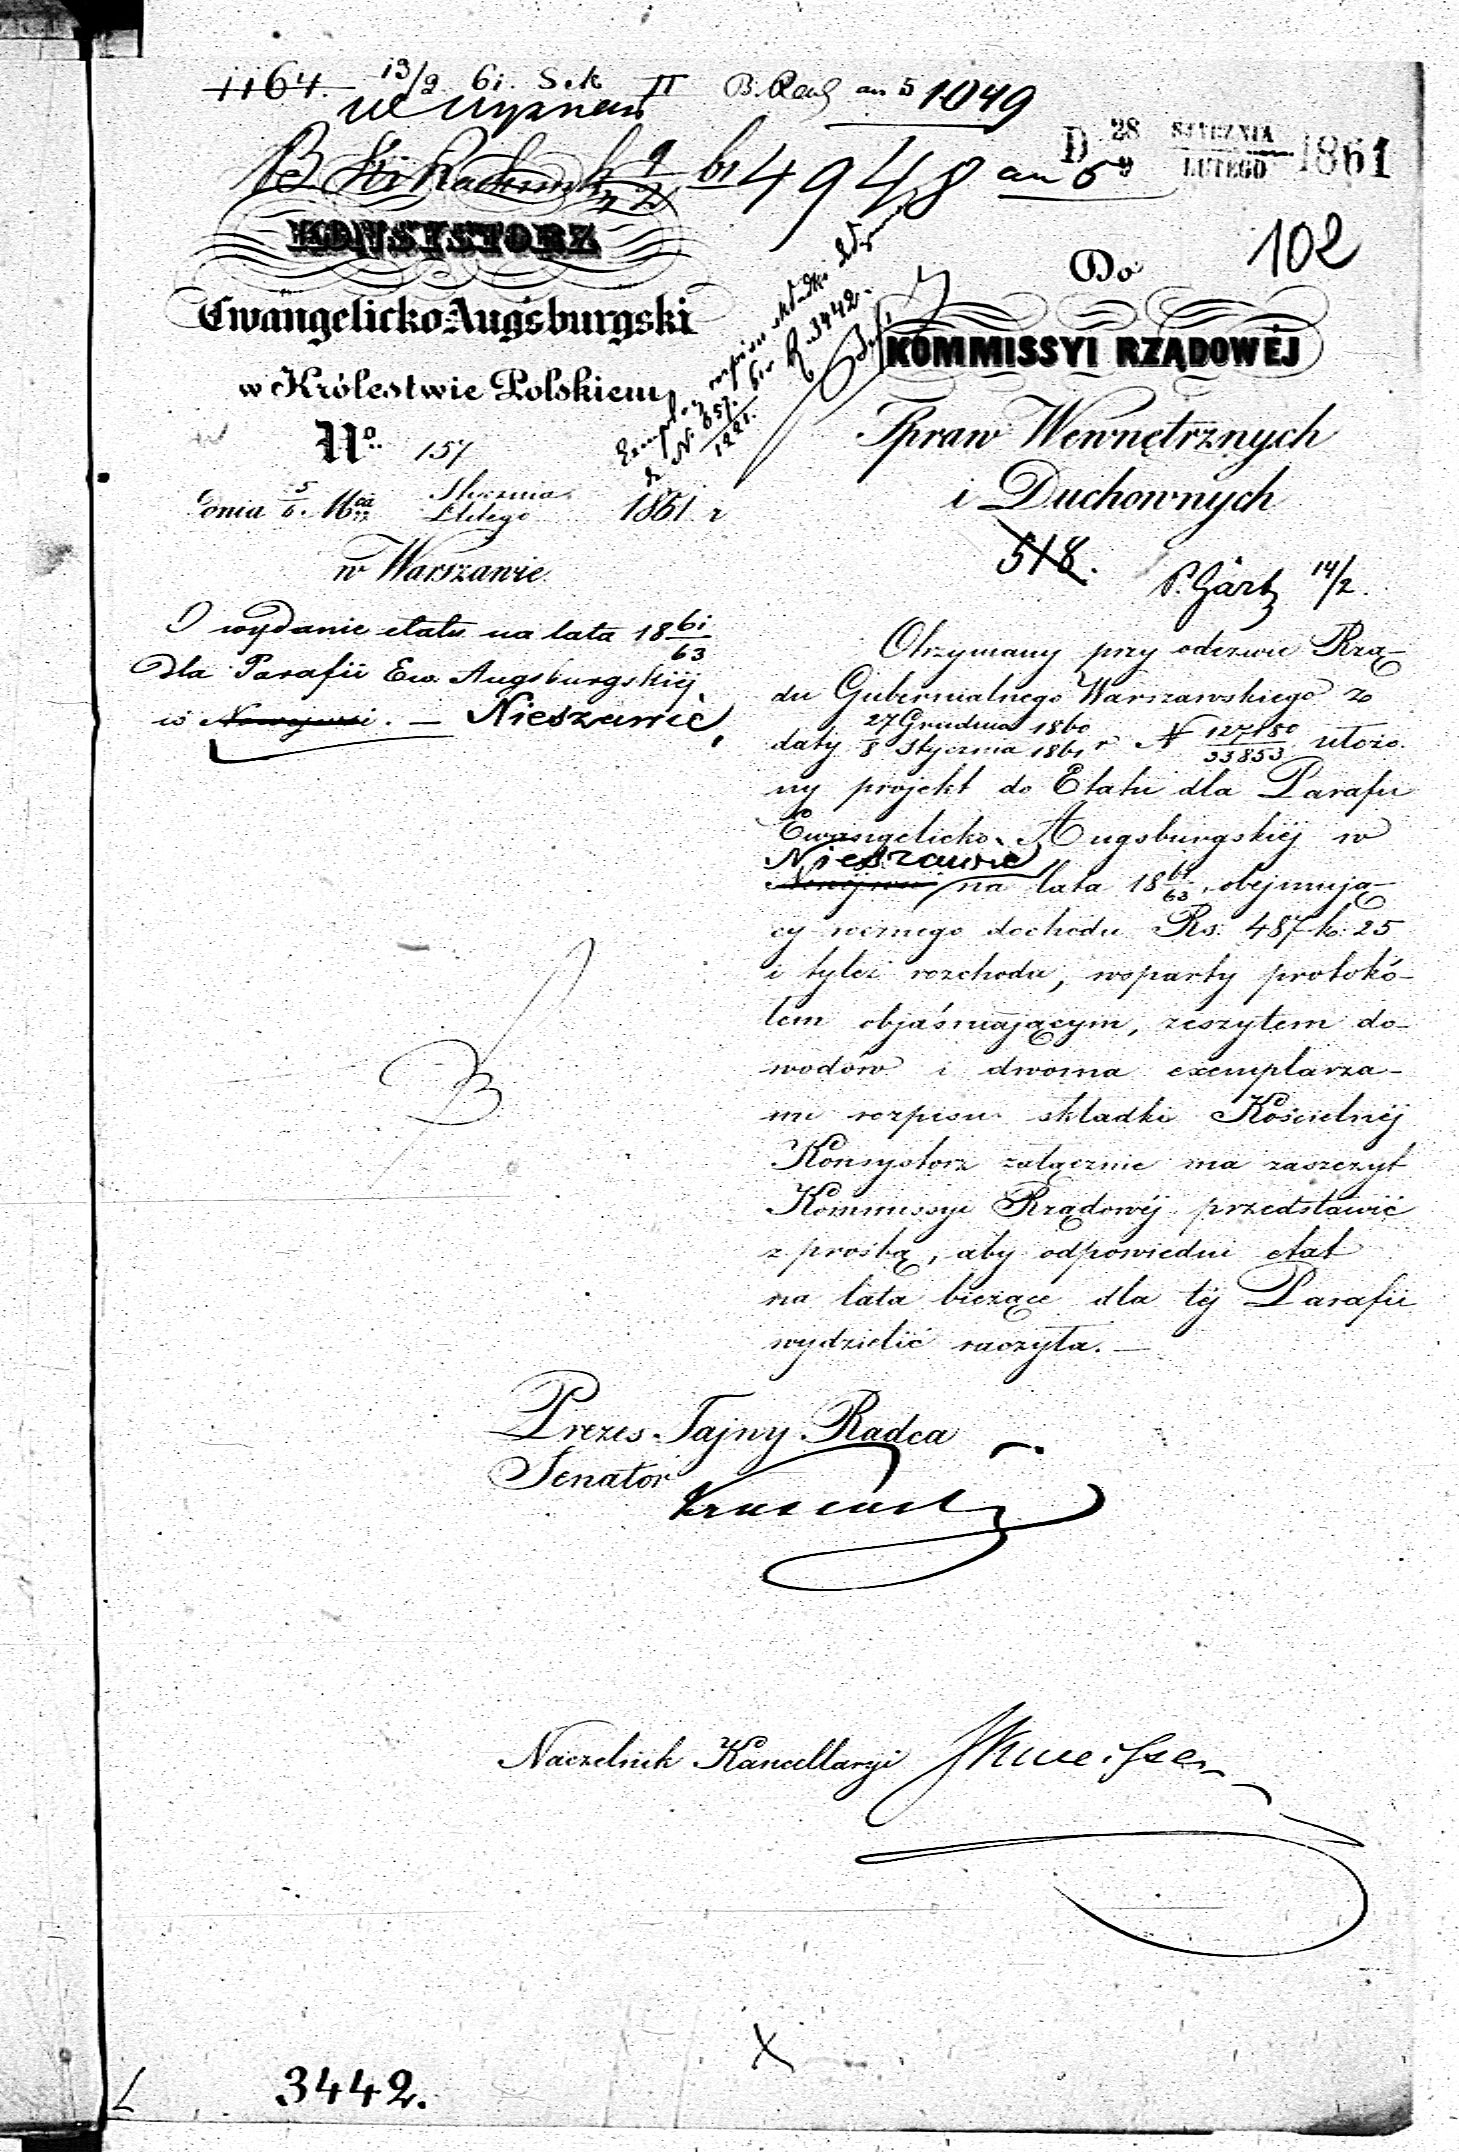 1164. 13/2 61. Sek II B. Rach an 5 1049
W Wyznań
B 9/2 61 4948 an 5
D 28/9 STYCZNIA/LUTEGO 1861
102
KONSYSTORZ
Ewangelicko-Augsburgski
w Królestwie Polskiem
No. 157
dnia 5/6 Mca Stycznia/Lutego 1861 r
w Warszawie
Exemplarz rozpisu składki
z N. 657/1221. R. 3442.
O wydanie etatu na lata 18 61/63
dla Parafii Ew. Augsburgskiéj
w Nowejwsi. — Nieszawie,
Do
KOMMISSYI RZĄDOWÉJ
Spraw Wewnętrznych
i Duchownych
518.
P. Gärtz 14/2.
Otrzymany przy odezwie Rzą-
du Gubernialnego Warszawskiego z
daty 27 Grudnia 1860/8 Stycznia 1861 r N 127180/33853 ułożo-
ny projekt do Etatu dla Parafii
Ewangelicko-Augsburgskiéj w
Nieszawie
Nowéjwsi na lata 18 61/63, obejmują-
cy rocznego dochodu Rs. 487 k. 25
i tyleż rozchodu, wsparty protokó-
łem objaśniającym, zeszytem do-
wodów i dwoma exemplarza-
mi rozpisu składki Kościelnéj
Konsystorz załącznie ma zaszczyt
Kommissyi Rządowéj przedstawić
z prośbą, aby odpowiedni etat
na lata bieżące dla téj Parafii
wydzielić raczyła. —
Prezes Tajny Radca
Senator
Naczelnik Kancellaryi
3442.